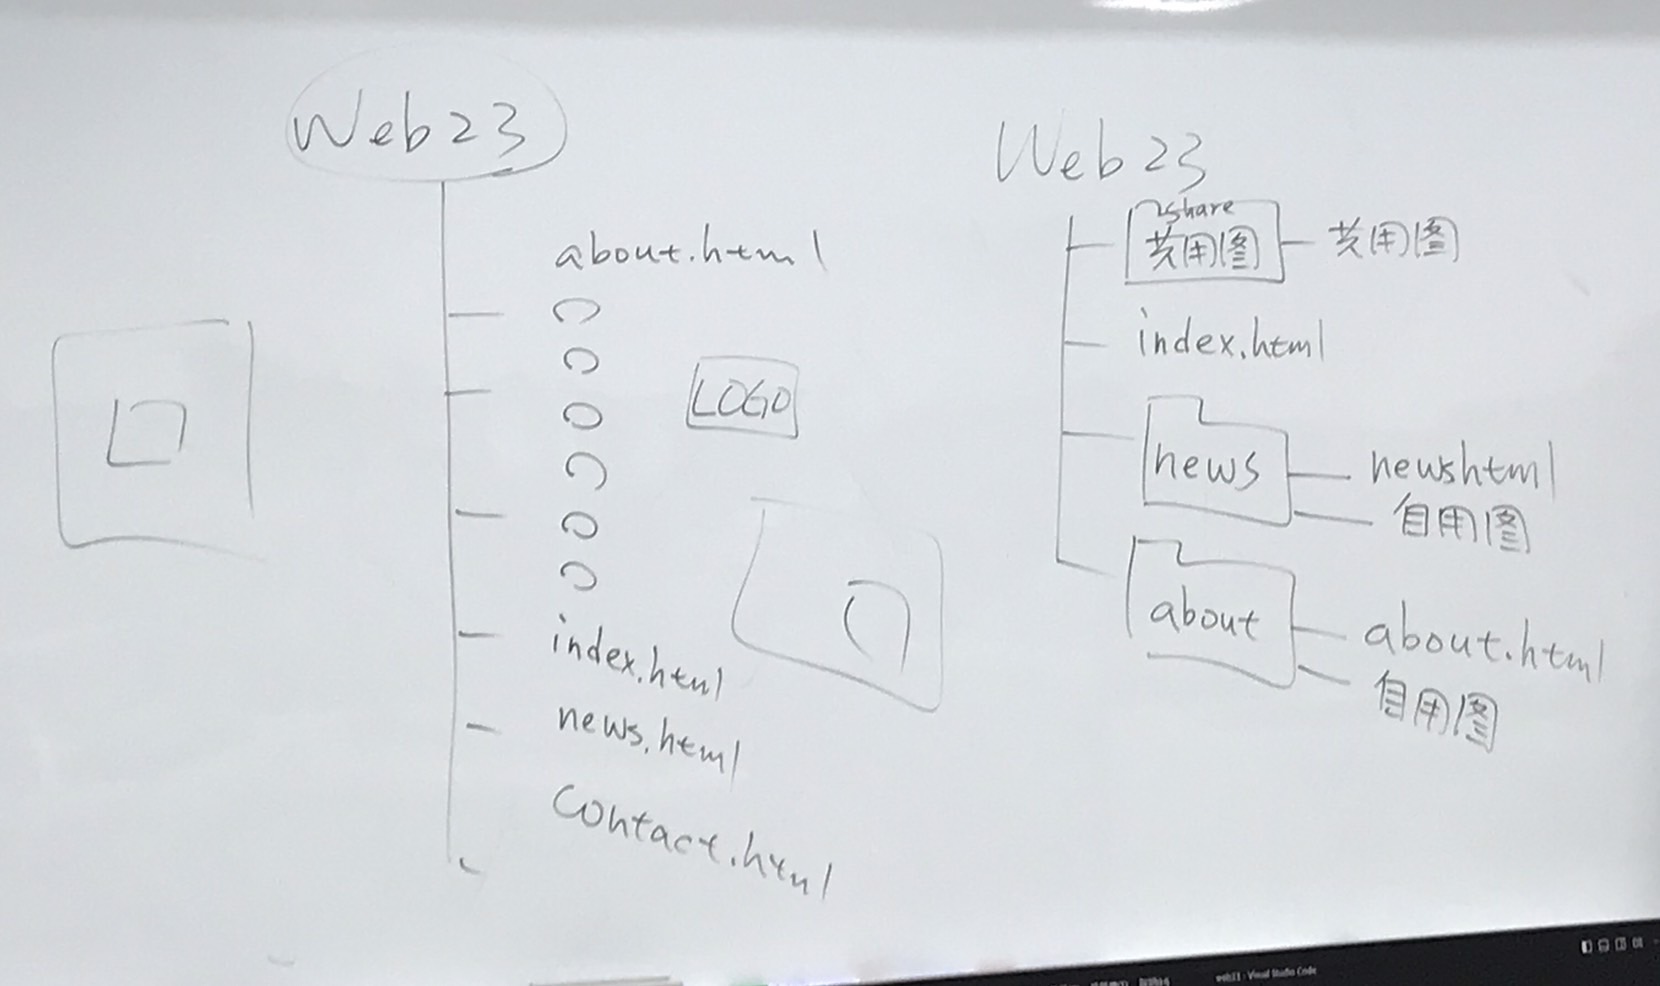 Web23
about.html
LOGO
index.html
news.html
Contact.html
Web23
share
共用图
共用图
index.html
news
newshtml
自用图
about
about.html
自用图
web21 - Visual Studio Code